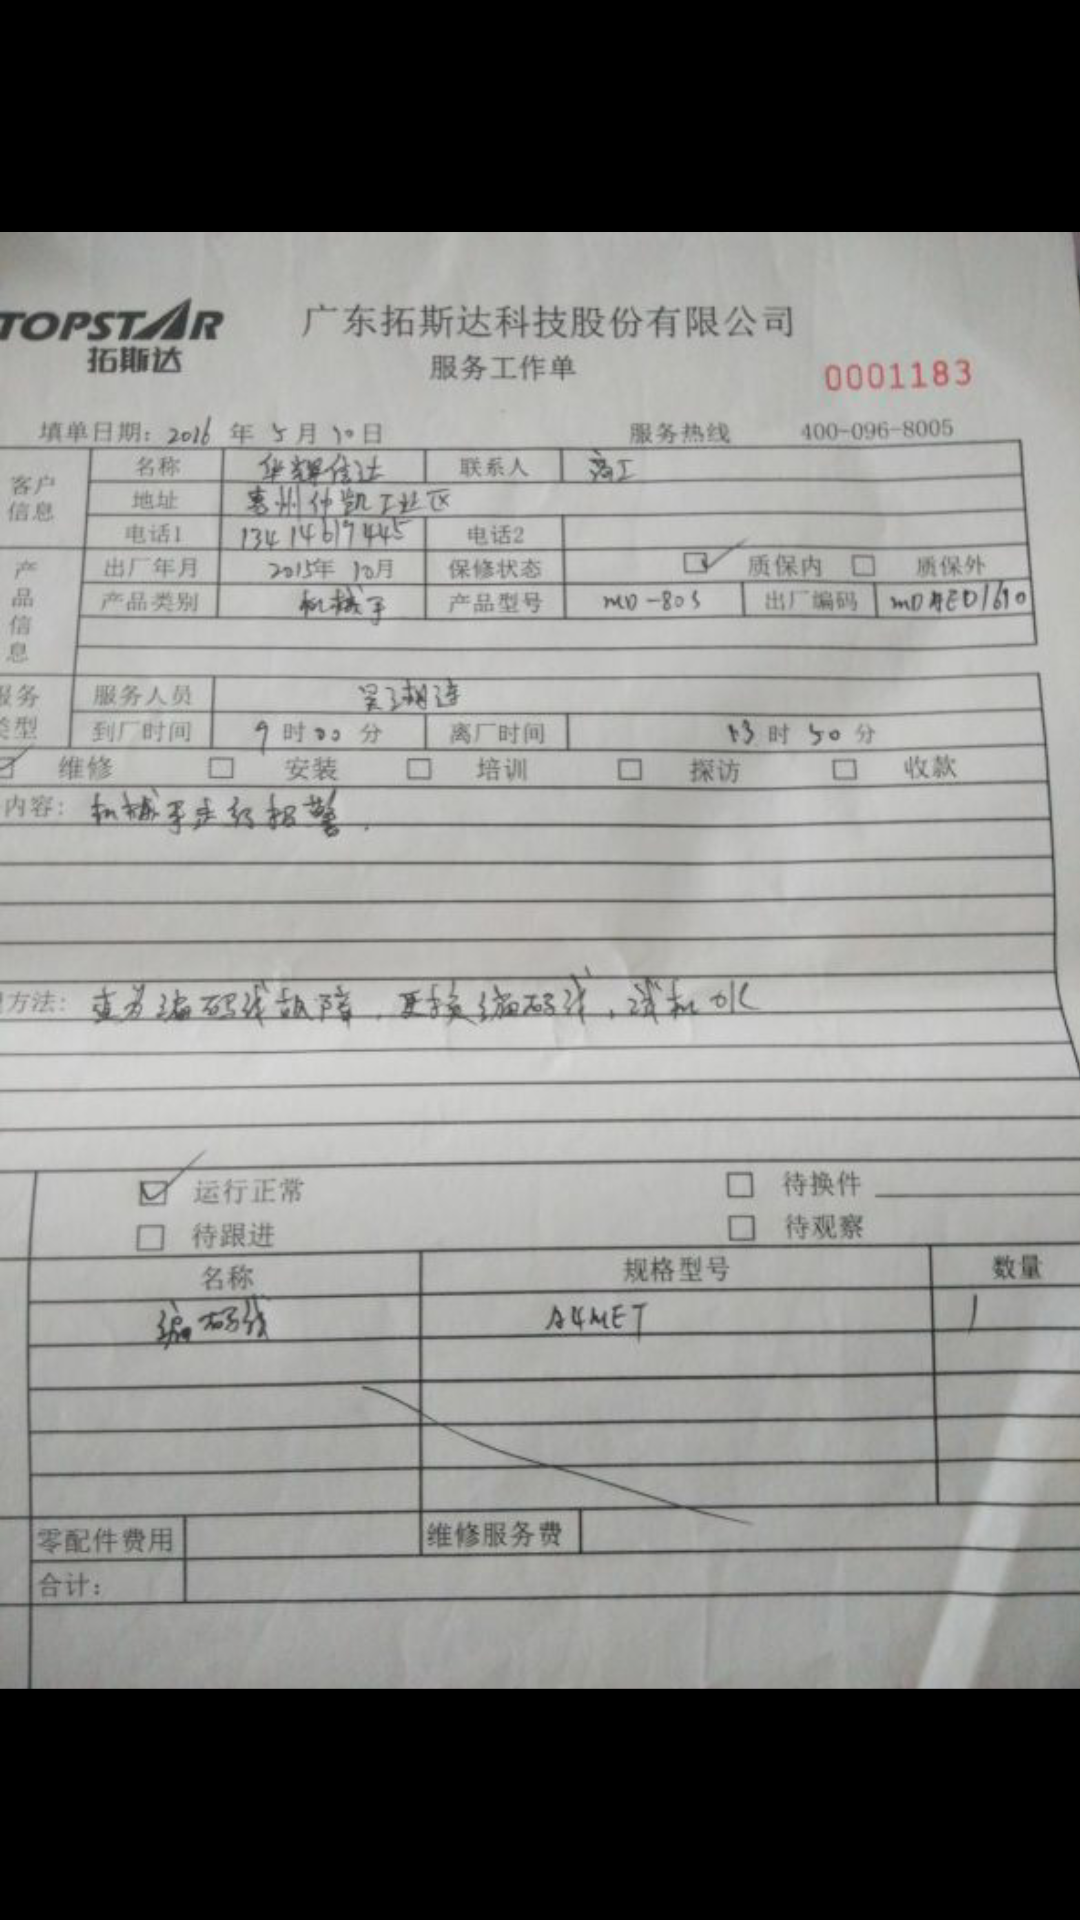 TOPSTAR
拓斯达
广东拓斯达科技股份有限公司
服务工作单
0001183
填单日期: 2016 年 5 月 10 日 服务热线 400-096-8005
客户信息
名称 华辉信达 联系人
地址 惠州仲凯工业区
电话1 13414617445 电话2
产品信息
出厂年月 2015年 10月 保修状态 质保内 质保外
产品类别 机械手 产品型号 MD-80S 出厂编码
服务类型
服务人员
到厂时间 9 时 00 分 离厂时间 13 时 50 分
维修 安装 培训 探访 收款
内容: 机械手走行报警.
方法: 查为编码线故障, 更换编码线, 试机OK
运行正常 待换件
待跟进 待观察
名称 规格型号 数量
编码线 A4MET 1
零配件费用 维修服务费
合计: